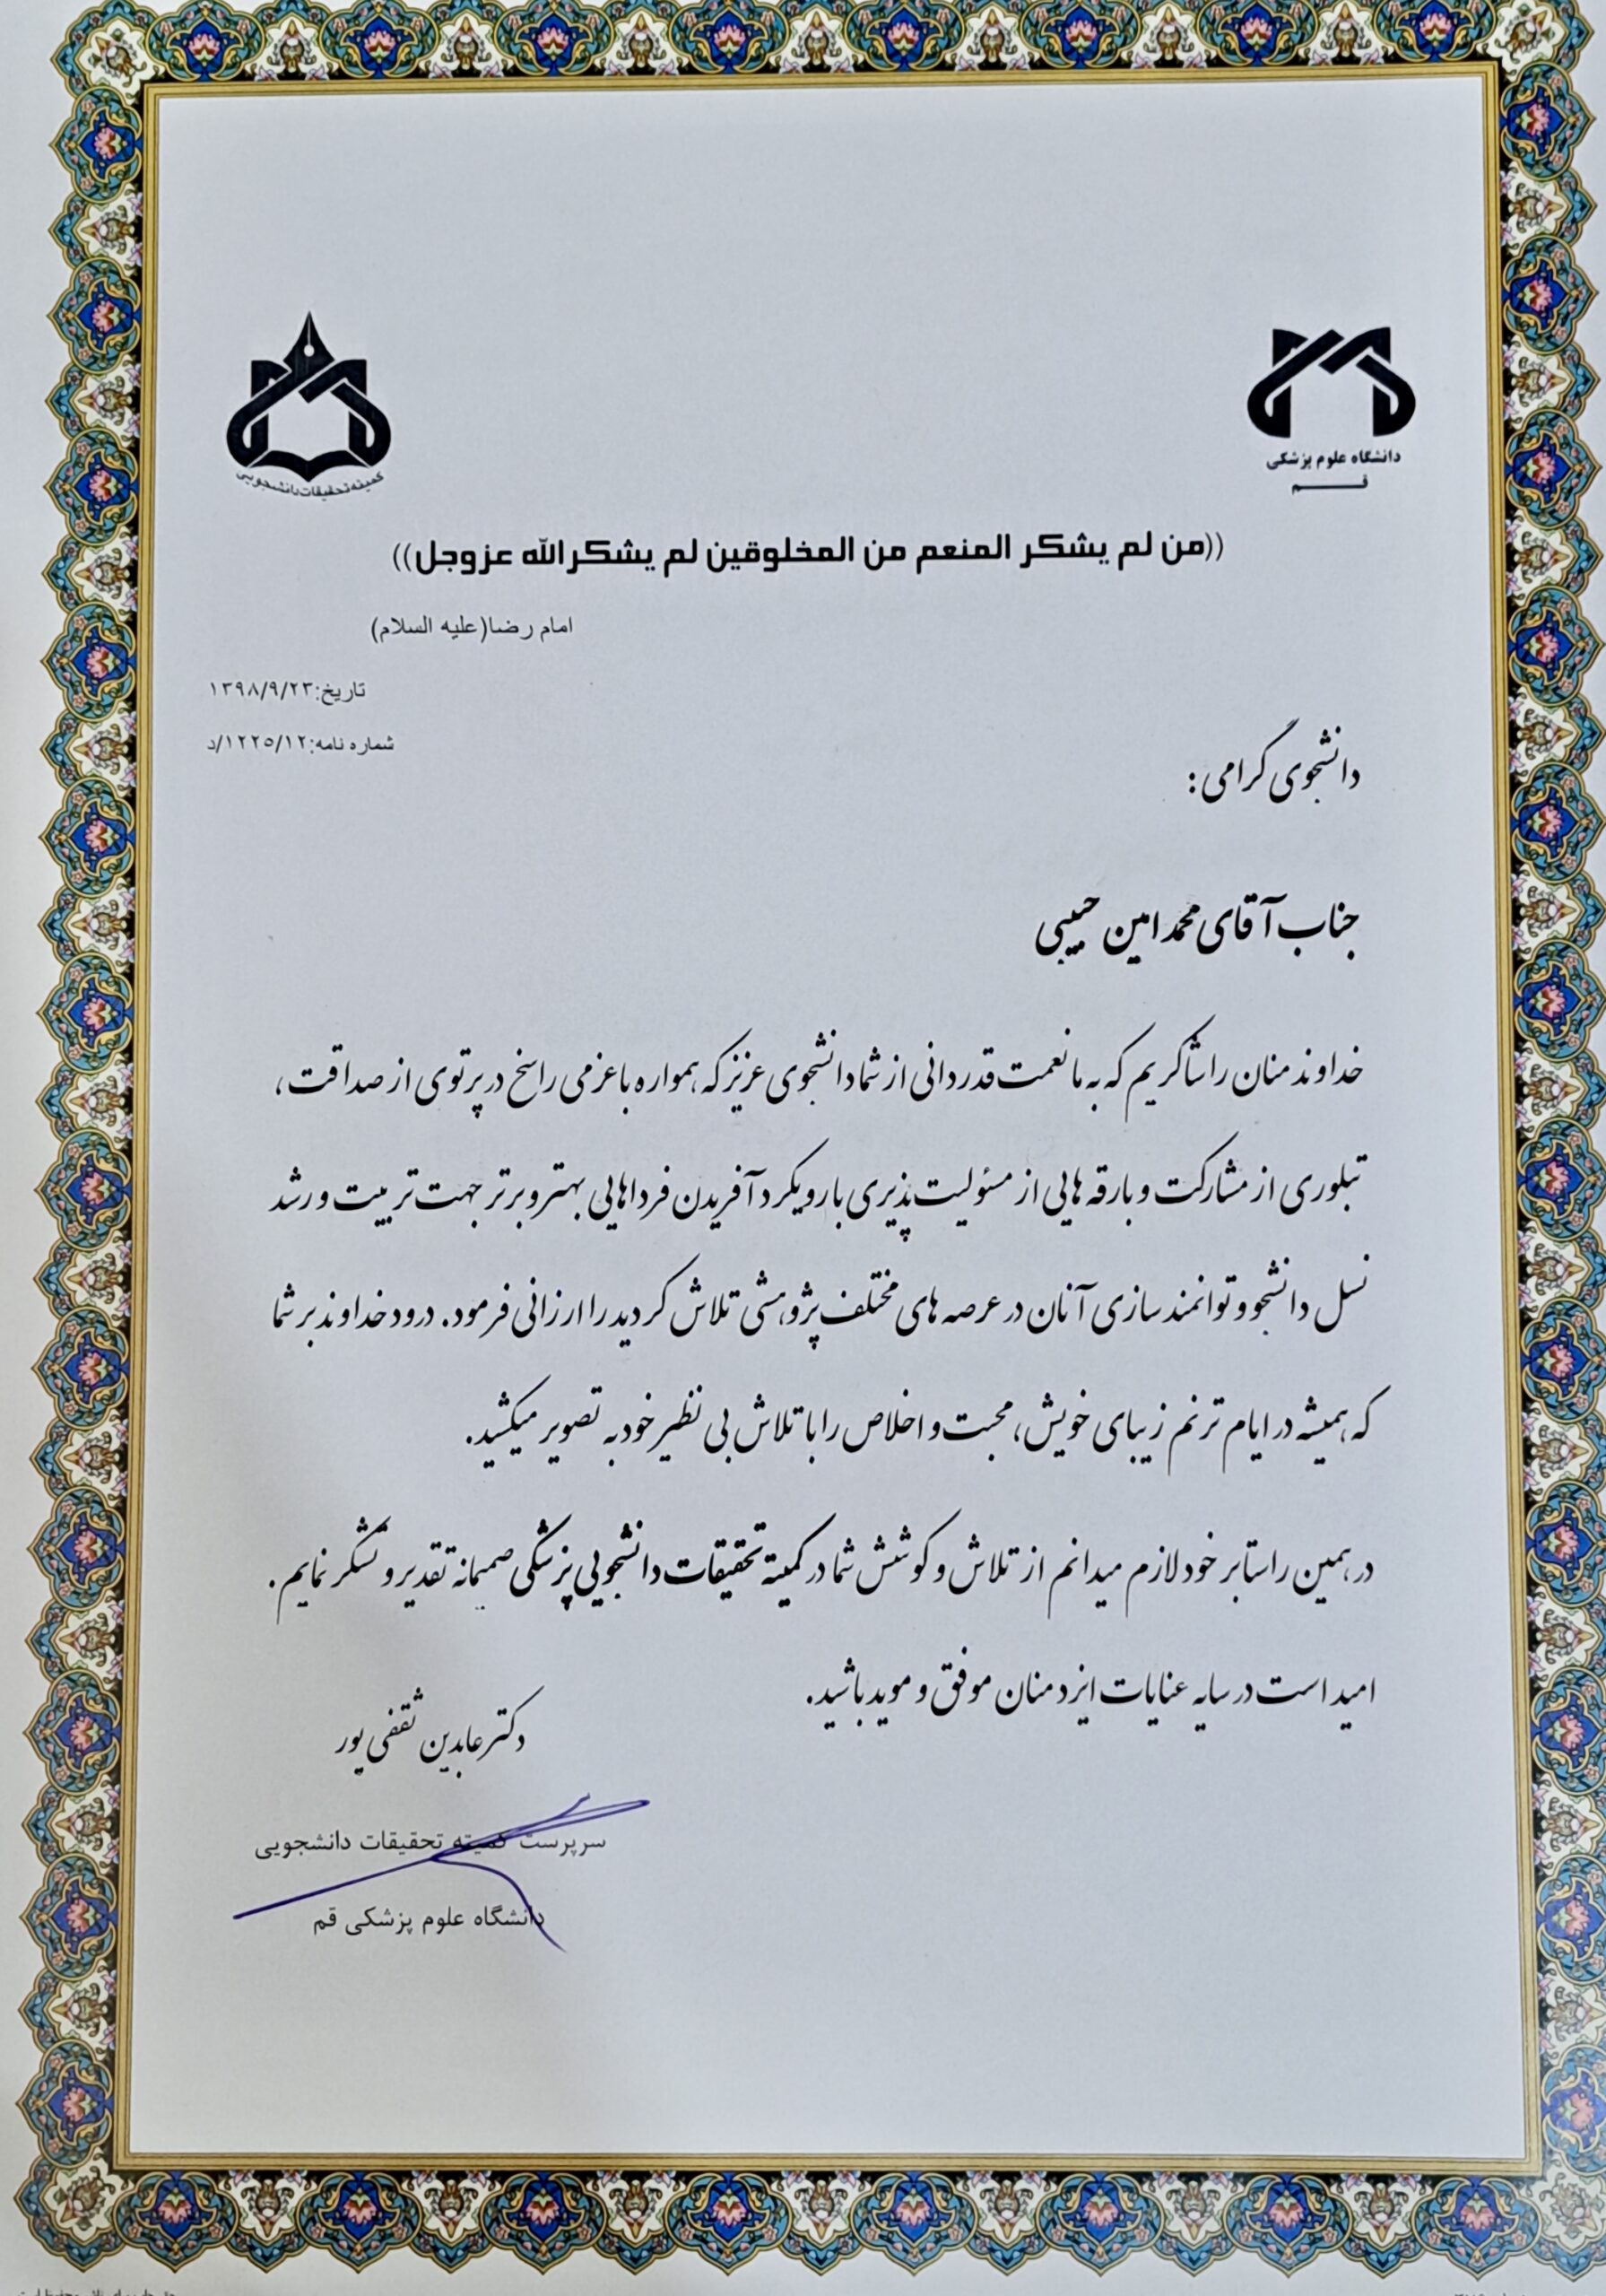 دانشگاه علوم پزشکی
قم
کمیته تحقیقات دانشجویی
((من لم یشکر المنعم من المخلوقین لم یشکرالله عزوجل))
امام رضا(علیه السلام)
تاریخ:۱۳۹۸/۹/۲۳
شماره نامه:۱۲۲۵/۱۲/د
دانشجوی گرامی :
جناب آقای محمد امین حبیبی
خداوند منان را شاکریم که به ما نعمت قدردانی از شما دانشجوی عزیز که همواره با عزمی راسخ در پرتوی از صداقت،
تبلوری از مشارکت و بارقه هایی از مسئولیت پذیری با رویکرد آفریدن فرداهایی بهتر و برتر جهت تربیت و رشد
نسل دانشجو و توانمند سازی آنان در عرصه های مختلف پژوهشی تلاش کردید را ارزانی فرمود. درود خداوند بر شما
که همیشه در ایام ترنم زیبای خویش، محبت و اخلاص را با تلاش بی نظیر خود به تصویر میکشید.
در همین راستا بر خود لازم میدانم از تلاش و کوشش شما در کمیته تحقیقات دانشجویی پزشکی صمیمانه تقدیر و تشکر نمایم.
امید است در سایه عنایات ایزد منان موفق و موید باشید.
دکتر عابدین ثقفی پور
سرپرست کمیته تحقیقات دانشجویی
دانشگاه علوم پزشکی قم